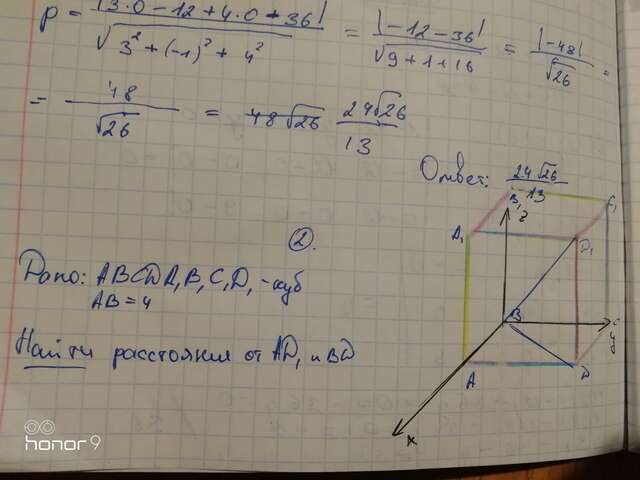 p = |3·0 - 12 + 4·0 - 36| / √(3² + (-1)² + 4²) = |-12 - 36| / √(9 + 1 + 16) = |-48| / √26 =
= 48 / √26 = 48√26 24√26 / 13
Ответ: 24√26 / 13
2.
Дано: ABCDA₁B₁C₁D₁ - куб
AB = 4
Найти расстояния от AD₁ и BD
B₁ C₁
z
A₁ D₁
B C
y
A D
x
honor 9